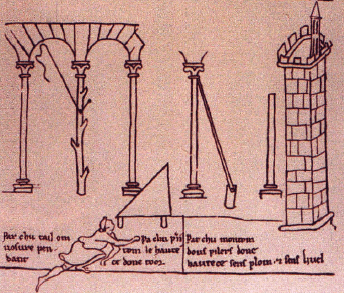 Par chu tail om
vosure pen
dant
Par chu p'n
tom le haute
ce done toor.
Par chu montom
dous pilers done
hautece sens plom ⁊ sens livel